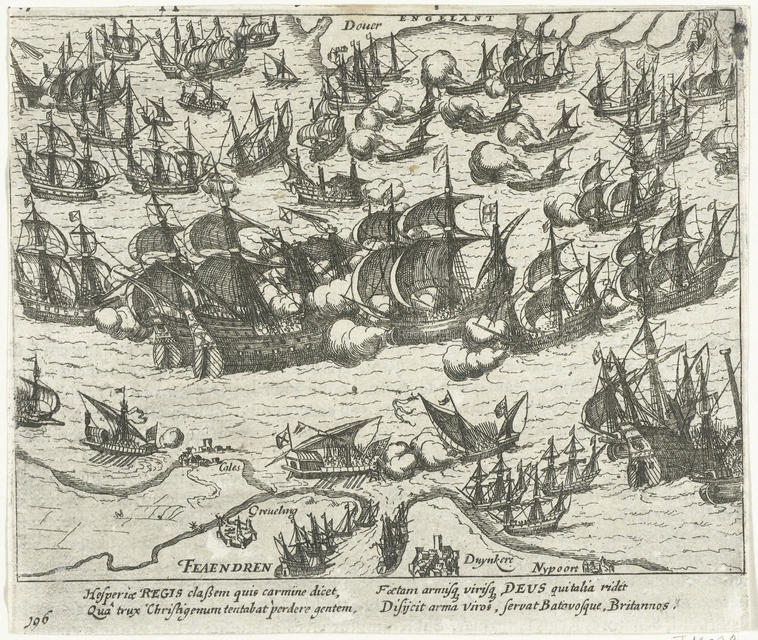 ENGELANT
Dover
Cales
Greveling
FLAENDREN
Duynkerc
Nypoort
Hesperiæ REGIS claßem quis carmine dicet,
Quâ trux Christigenum tentabat perdere gentem,
Fœtam armisq, virisq, DEUS qui talia ridét
Disÿcit arma Viros, servat Batavosque, Britannos.
196